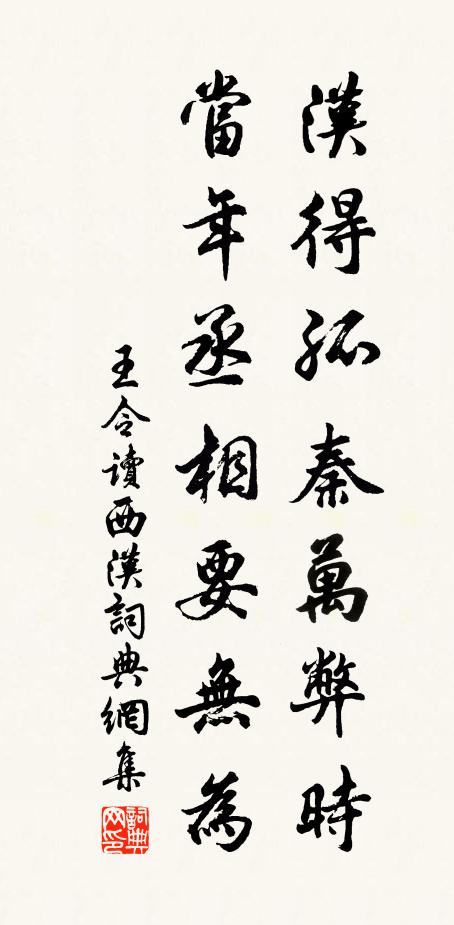 漢得孤秦萬弊時
當年丞相要無為
王令讀西漢詞典網集
詞典网印